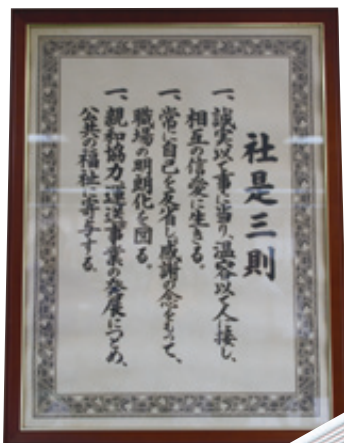 社是三則
一、誠実以て事に当り、温容以て人に接し、
相互の信愛に生きる。
一、常に自己を反省し、感謝の念をもって、
職場の明朗化を図る。
一、親和協力、運送事業の発展につとめ、
公共の福祉に寄与する。